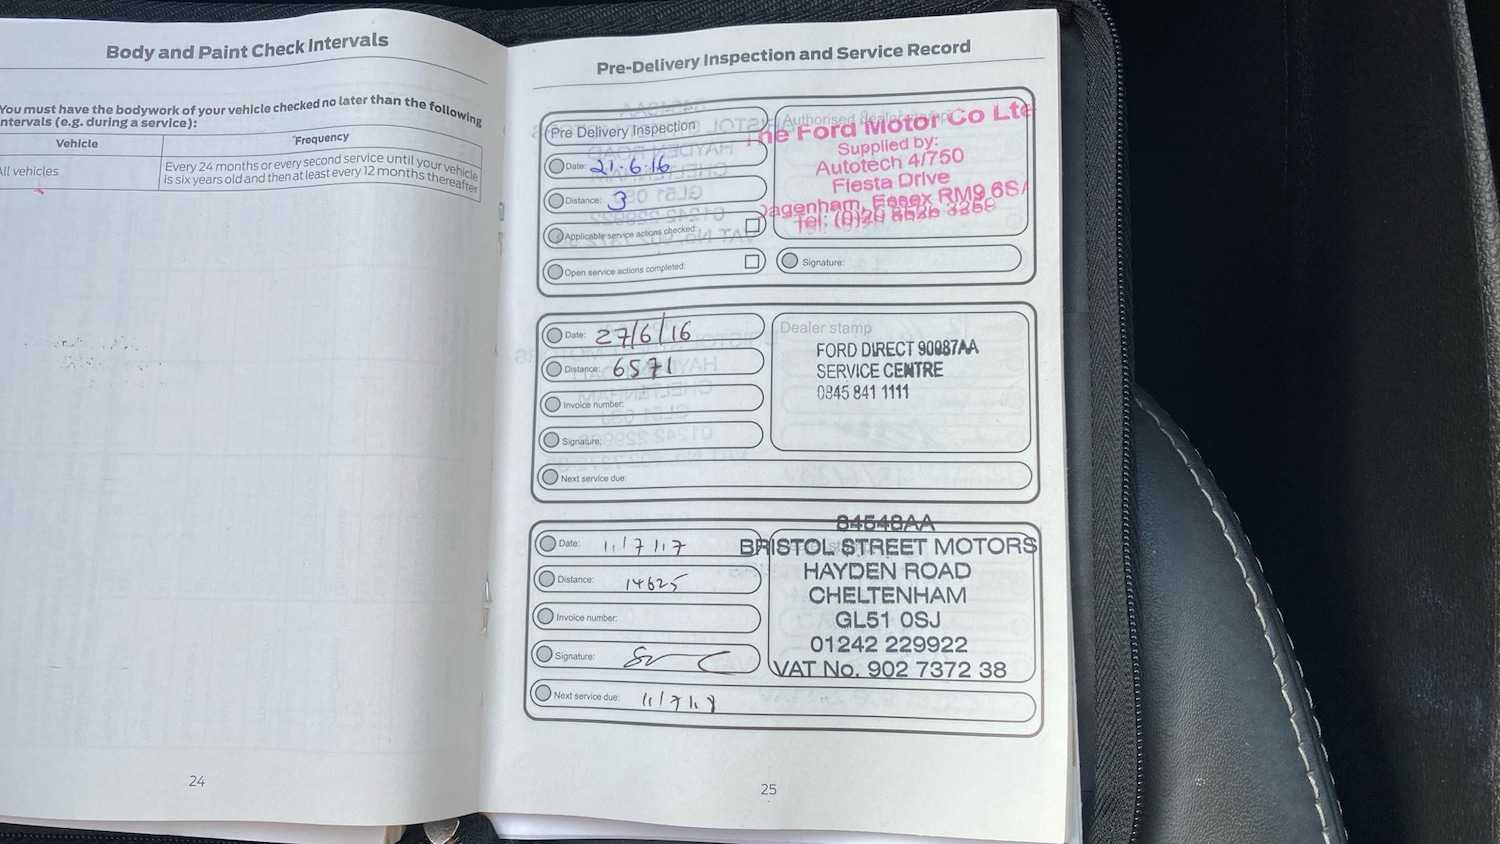 Body and Paint Check Intervals
You must have the bodywork of your vehicle checked no later than the following
intervals (e.g. during a service):
Vehicle
Frequency
All vehicles
Every 24 months or every second service until your vehicle
is six years old and then at least every 12 months thereafter
24
Pre-Delivery Inspection and Service Record
Pre Delivery Inspection
Date: 21.6.16
Distance: 3
Applicable service actions checked:
Open service actions completed:
Authorised dealer stamp
The Ford Motor Co Ltd
Supplied by:
Autotech 4/750
Fiesta Drive
Dagenham, Essex RM9 6SA
Tel: (0)20 8526 3268
Signature:
Date: 27/6/16
Distance: 6571
Invoice number:
Signature:
Next service due:
Dealer stamp
FORD DIRECT 90087AA
SERVICE CENTRE
0845 841 1111
Date: 11/7/17
Distance: 14625
Invoice number:
Signature:
Next service due: 11/7/18
84548AA
BRISTOL STREET MOTORS
HAYDEN ROAD
CHELTENHAM
GL51 0SJ
01242 229922
VAT No. 902 7372 38
25